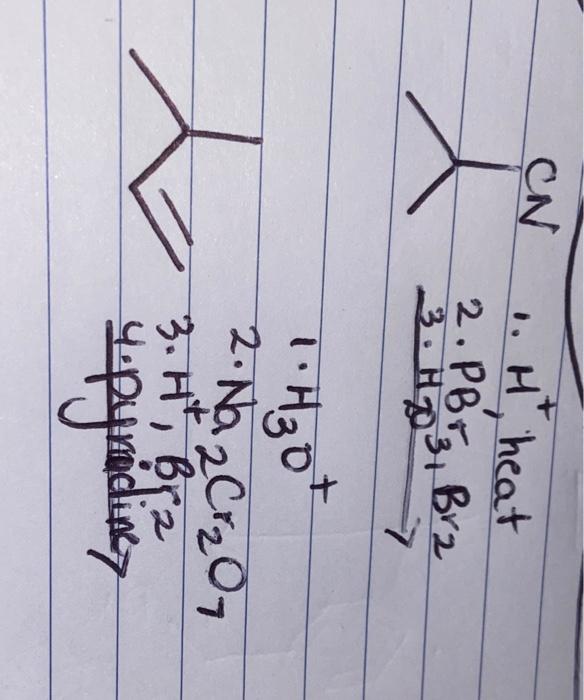 CN
1. H+, heat
2. PBr3, Br2
3. H2O
1. H3O+
2. Na2Cr2O7
3. H+, Br2
4. pyridine